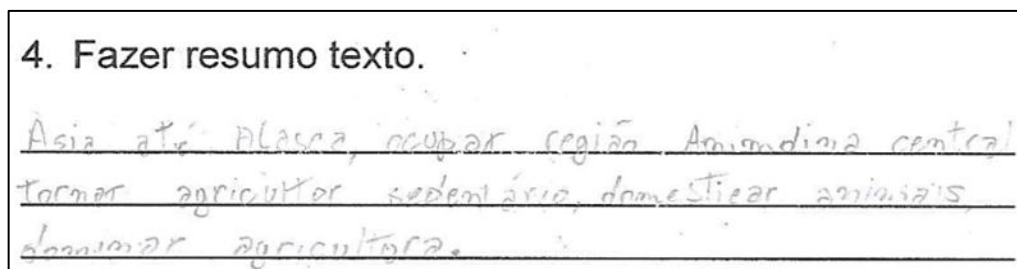 4. Fazer resumo texto.
Asia até Alasca, ocupar região central
tornar agricultor sedentário, domesticar animais,
dominar agricultura.